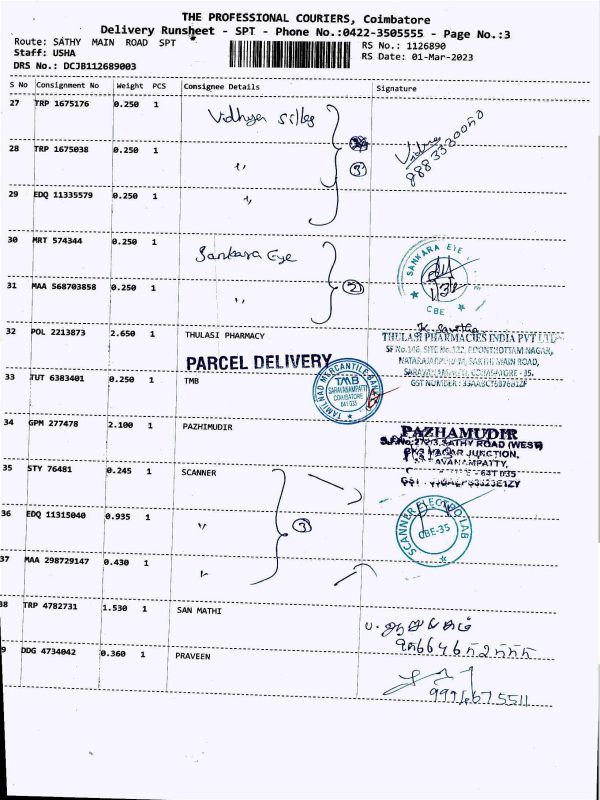 THE PROFESSIONAL COURIERS, Coimbatore
Delivery Runsheet - SPT - Phone No.:0422-3505555 - Page No.:3
Route: SATHY MAIN ROAD SPT
RS No.: 1126890
Staff: USHA
RS Date: 01-Mar-2023
DRS No.: DCJB112689003
S No Consignment No Weight PCS Consignee Details Signature
27 TRP 1675176 0.250 1 Vidhya Silks
28 TRP 1675038 0.250 1 〃 3
29 EDQ 11335579 0.250 1 〃
30 MRT 574344 0.250 1 Sankara Eye
SANKARA EYE
CBE
31 MAA 568703858 0.250 1 〃 2
32 POL 2213873 2.650 1 THULASI PHARMACY
THULASI PHARMACIES INDIA PVT LTD
NAGAR,
MAIN ROAD,
PARCEL DELIVERY
33 TUT 6383401 0.250 1 TMB
TAMILNAD MERCANTILE BANK
TMB
SARAVANAMPATTI
COIMBATORE
641 035
34 GPM 277478 2.100 1 PAZHIMUDIR
PAZHAMUDIR
SATHY ROAD (WEST)
JUNCTION,
35 STY 76481 0.245 1 SCANNER
36 EDQ 11315040 0.935 1 〃 3
SCANNER ELECTRO LAB
CBE-35
37 MAA 298729147 0.430 1 〃
38 TRP 4782731 1.530 1 SAN MATHI
9 DDG 4734042 0.360 1 PRAVEEN
9994675511